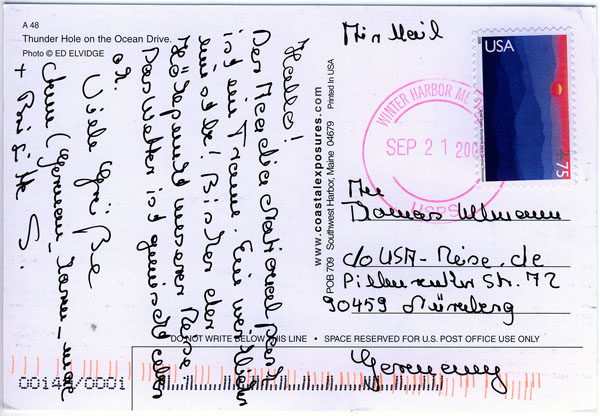 A 48
Thunder Hole on the Ocean Drive.
Photo © ED ELVIDGE
Hallo!
Der Acadia National Park
ist ein Traum. Ein
Bisher der
Höhepunkt unserer Reise.
Das Wetter ist gemischt aber
ok.
Viele Grüße
+ Brigitte S.
www.coastalexposures.com
POB 709 Southwest Harbor, Maine 04679 Printed in USA
Air Mail
USA
75
WINTER HARBOR ME
SEP 21
USPS
An
Thomas Ullmann
c/o USA-Reise.de
Str. 72
90459 Nürnberg
DO NOT WRITE BELOW THIS LINE • SPACE RESERVED FOR U.S. POST OFFICE USE ONLY
Germany